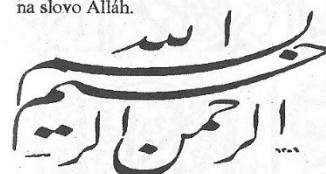 na slovo Alláh.
بسم الله
الرحمن الرحيم